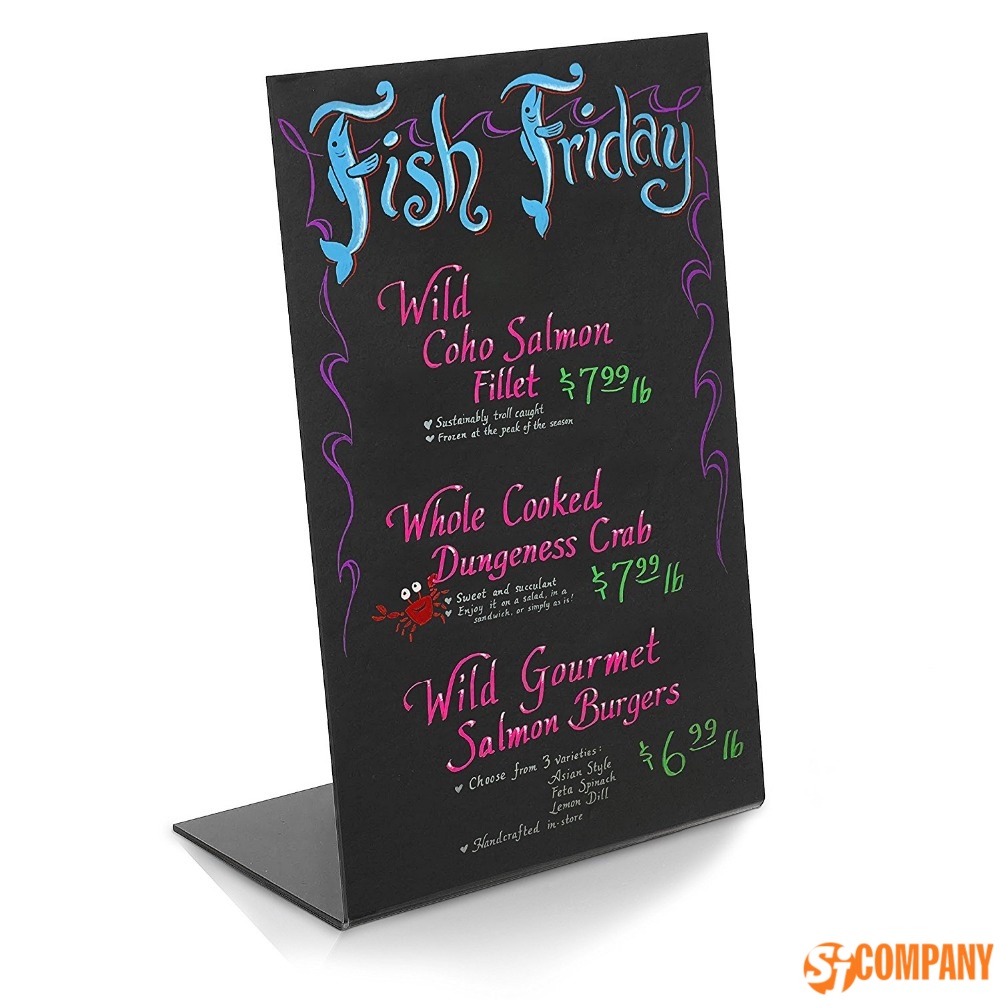 Fish Friday
Wild
Coho Salmon
Fillet $7.99 lb
Sustainably troll caught
Frozen at the peak of the season
Whole Cooked
Dungeness Crab
$7.99 lb
Sweet and succulant
Enjoy it on a salad, in a
sandwich, or simply as is!
Wild Gourmet
Salmon Burgers
$6.99 lb
Choose from 3 varieties:
Asian Style
Feta Spinach
Lemon Dill
Handcrafted in-store
Si COMPANY